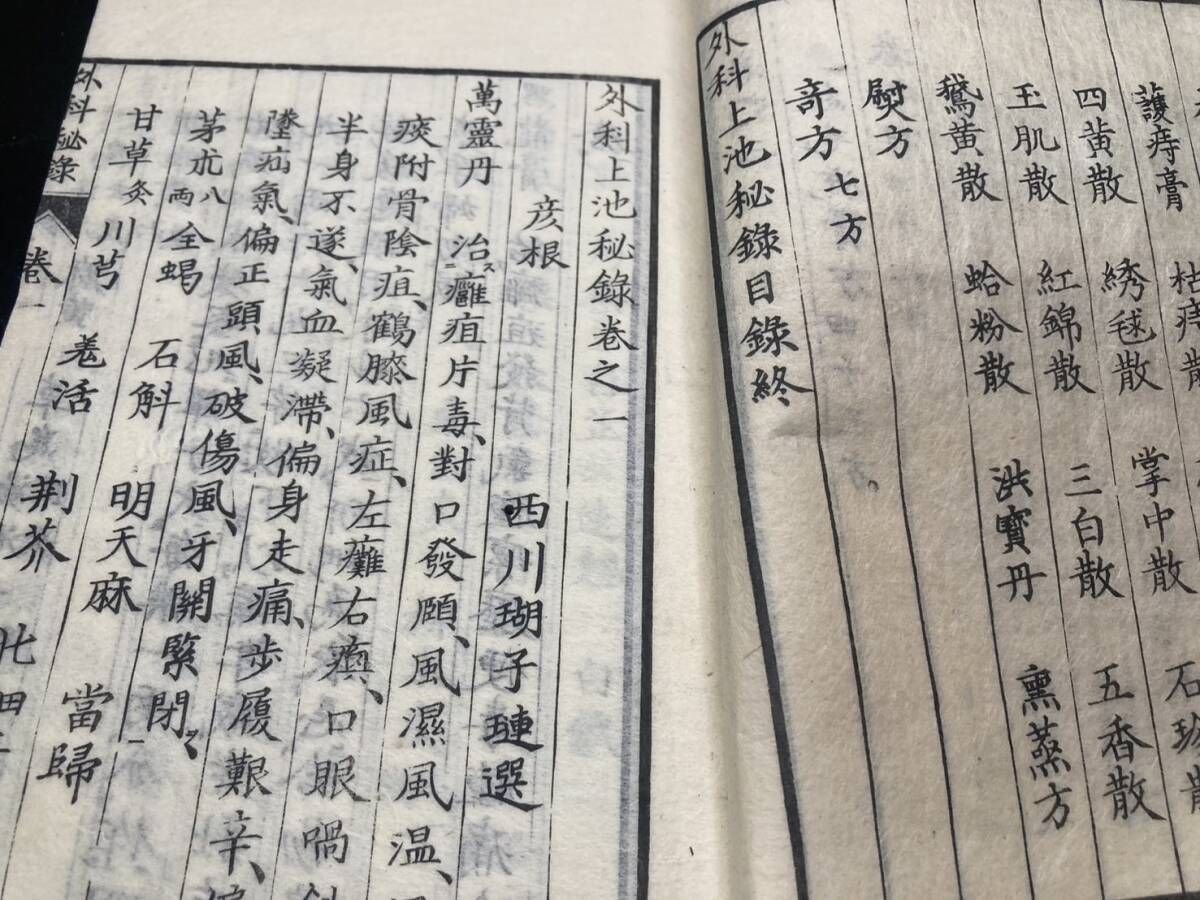 護痔膏 枯痔散 掌中散
四黄散 綉毬散 三白散 五香散
玉肌散 紅錦散 洪寶丹 熏蒸方
鵝黄散 蛤粉散
熨方
奇方七方
外科上池秘錄目錄終
外科上池秘錄卷之一
彦根 西川瑚子璉選
萬靈丹 治ニス癰疽片毒、對口發頤、風濕風温、
痰附骨陰疽、鶴膝風症、左癱右瘓、口眼喎
半身不遂、氣血凝滯、偏身走痛、步履艱辛、
墜疝氣、偏正頭風、破傷風、牙關緊閉
茅朮八両 全蝎 石斛 明天麻 當歸
甘草炙 川芎 羌活 荆芥
外科秘錄 卷一